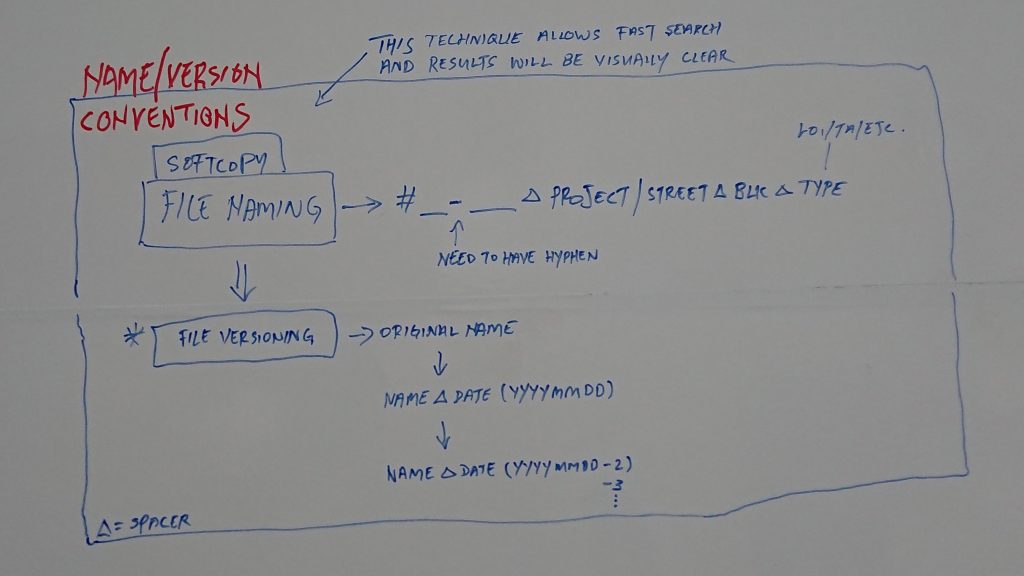 THIS TECHNIQUE ALLOWS FAST SEARCH
AND RESULTS WILL BE VISUALLY CLEAR
NAME/VERSION
CONVENTIONS
LOI/TA/ETC.
SOFTCOPY
FILE NAMING → # __-___ Δ PROJECT/STREET Δ BLK Δ TYPE
NEED TO HAVE HYPHEN
* FILE VERSIONING → ORIGINAL NAME
NAME Δ DATE (YYYYMMDD)
NAME Δ DATE (YYYYMMDD-2)
-3
Δ = SPACER